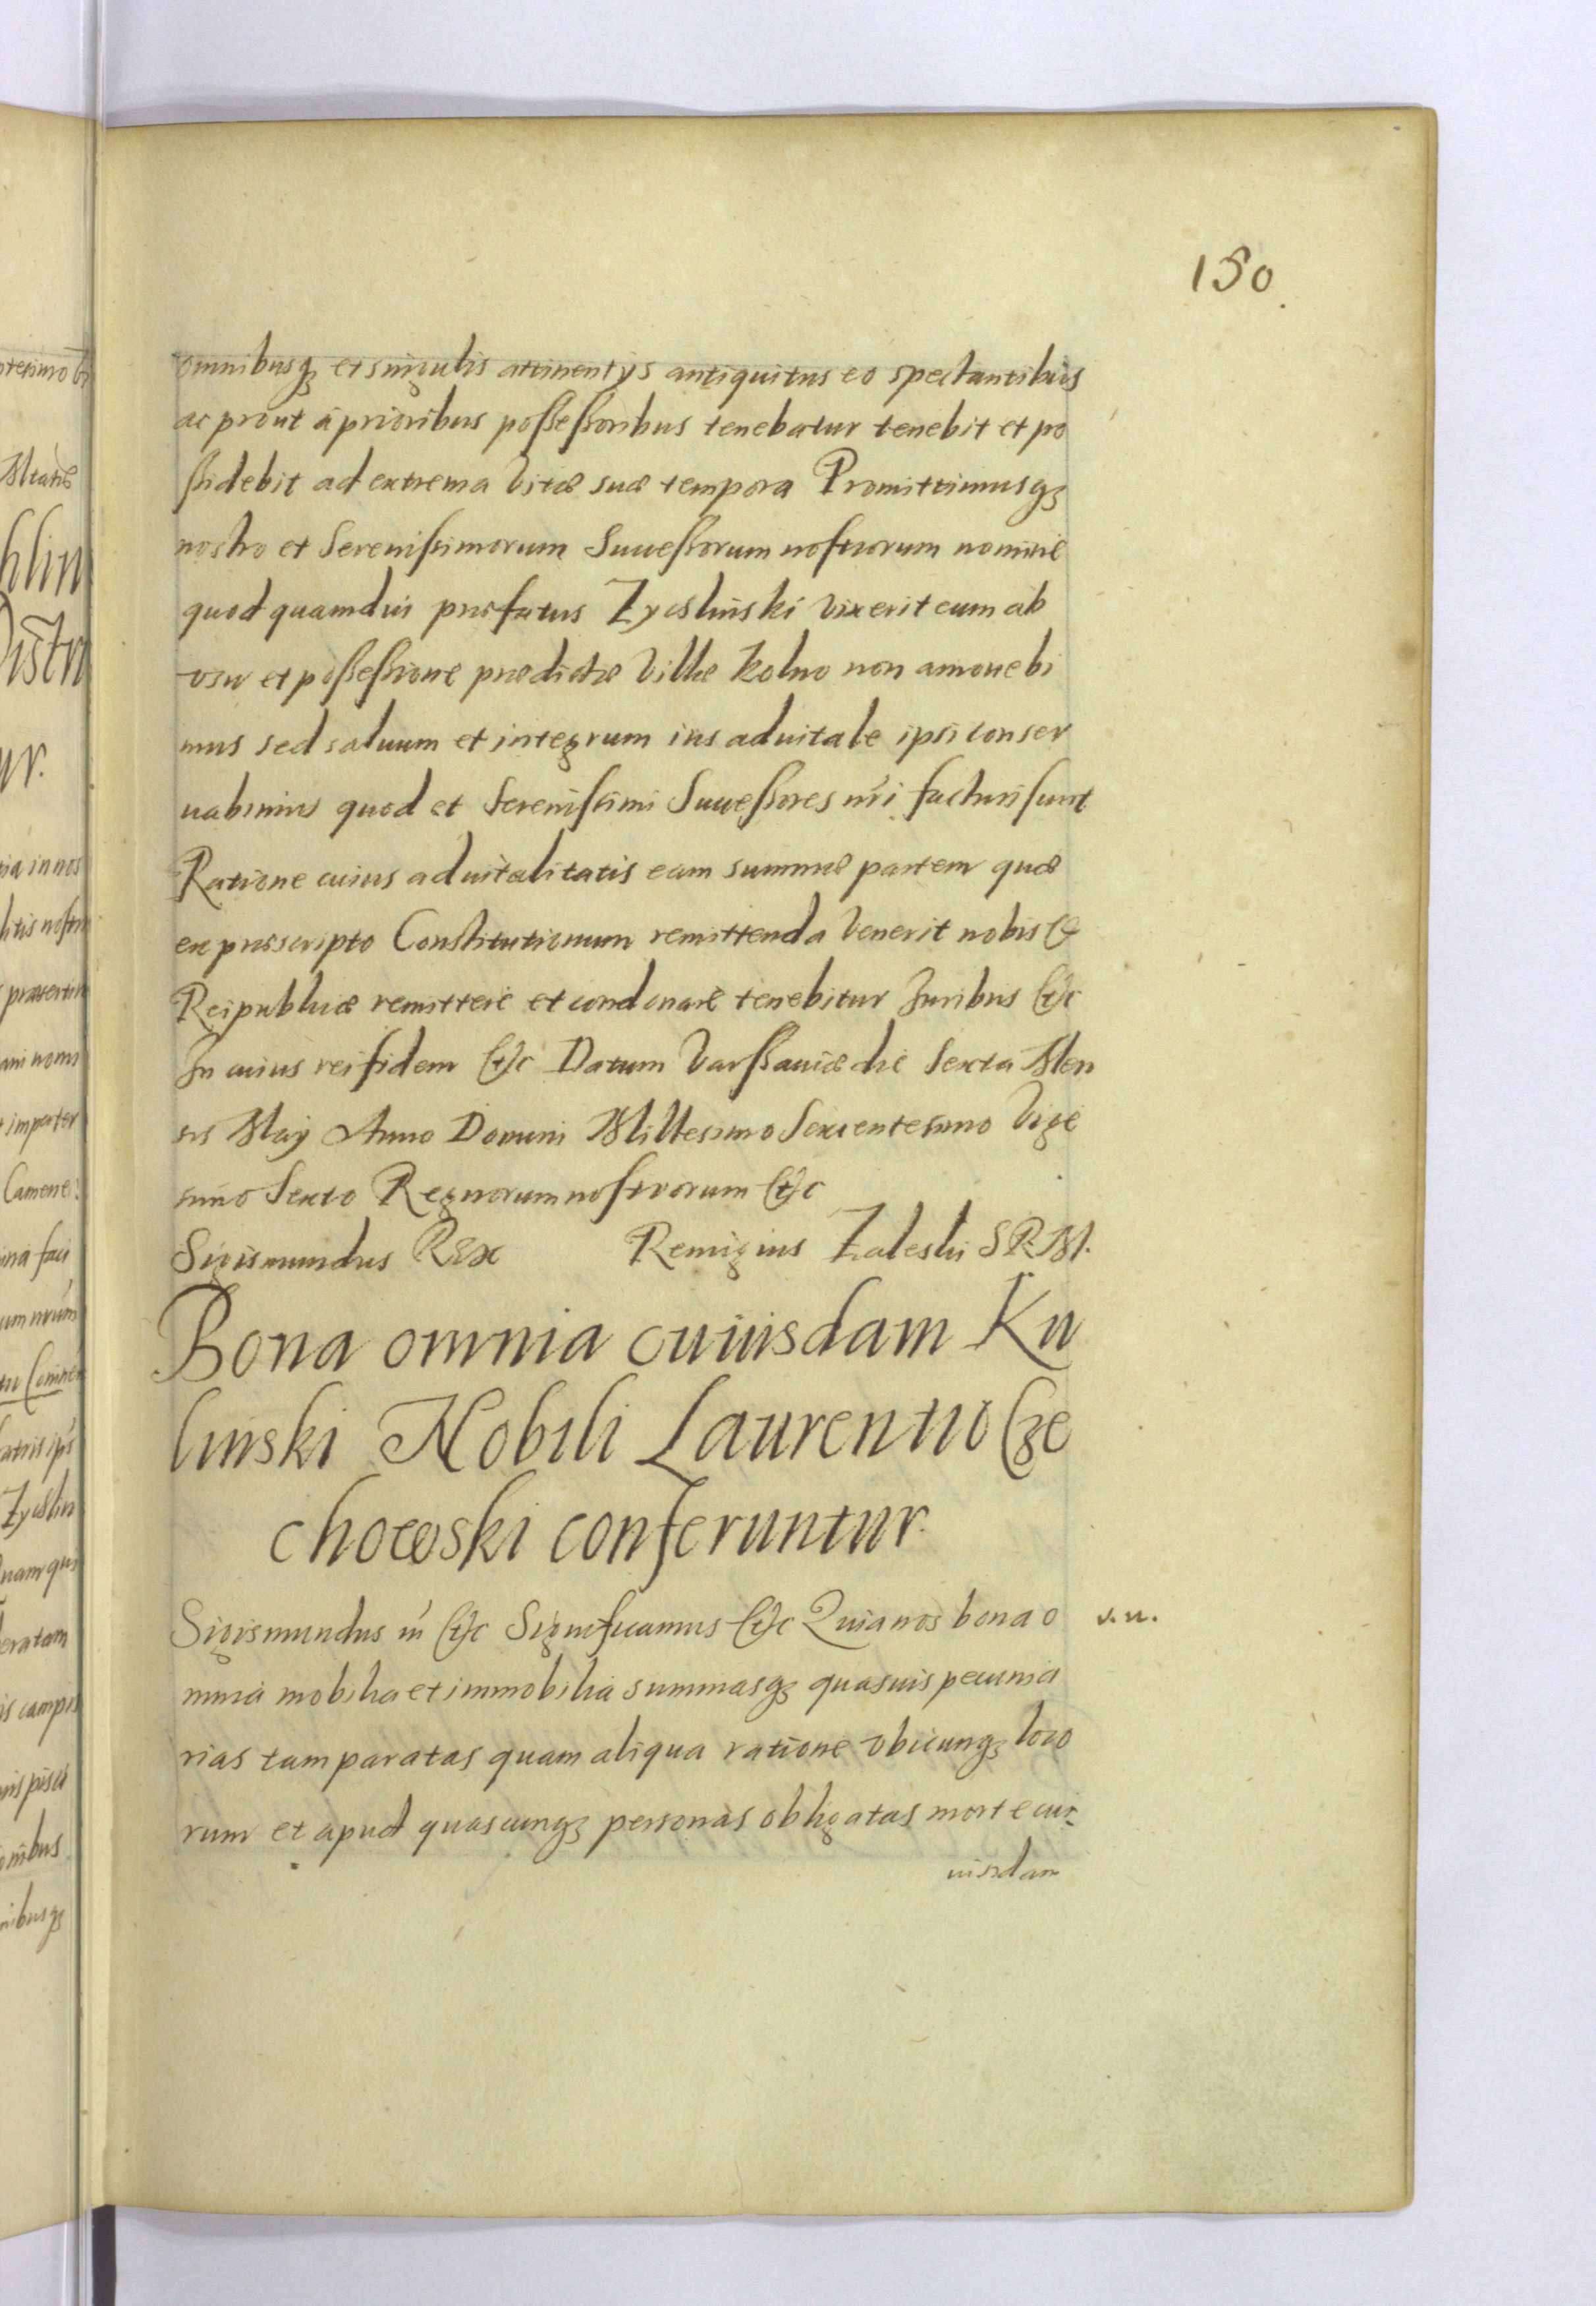 150
omnibusq₃ et singulis attinentijs antiquitus eo spectantibus
ac prout à prioribus possessoribus tenebatur tenebit et po
ssidebit ad extrema Vitæ suæ tempora Promittimusq₃
nostro et Serenissimorum Successorum nostrorum nomine
quod quamdiu præfatus Zyclinski Vixerit eum ab
vsu et possessione prædictæ Villæ Kolno non amouebi
mus sed saluum et integrum ius aduitale ipsi conser
uabimus quod et Serenissimi Successores nri facturi sunt
Ratione cuius aduitalitatis eam summæ partem quæ
ex præscripto Constitutionum remittenda Venerit nobis &
Reipublicæ remittere et condonare tenebitur Juribus &c
In cuius rei fidem &c Datum Varssauiæ die Sexta Men
sis Maij Anno Domini Millesimo Sexcentesimo Vige
simo Sexto Regnorum nostrorum &c
Sigismundus Rex Remigius Zaleski S R. M.
Bona omnia cuiusdam Ku
linski Nobili Laurentio Cze
chowski conferuntur.
Sigismundus &c Significamus &c Quia nos bona o v. u.
mnia mobilia et immobilia summasq₃ quasuis pecunia
rias tam paratas quam aliqua ratione vbicunq₃ loco
rum et apud quascunq₃ personas obligatas morte cu
iusdam